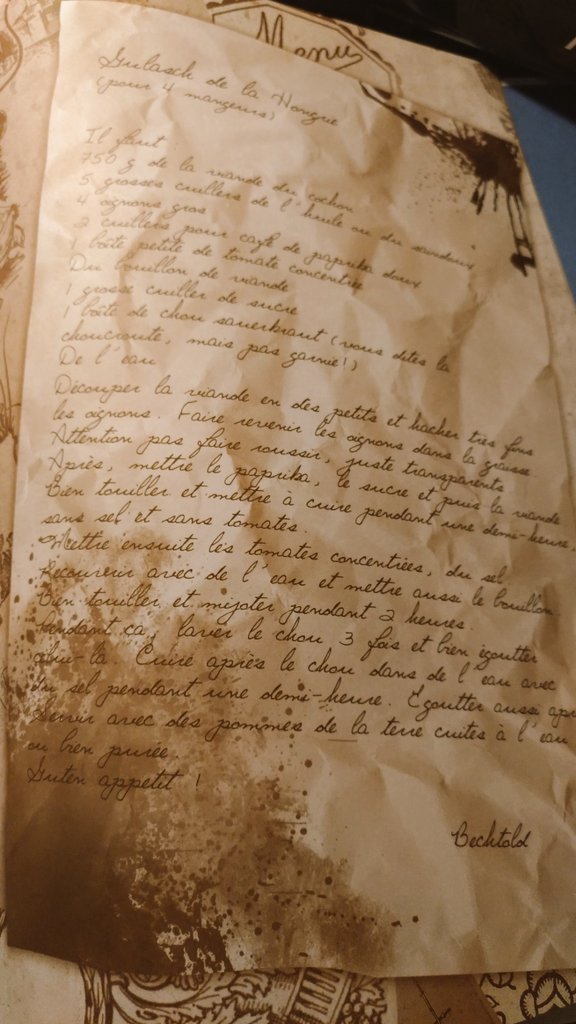 Menu
Gulasch de la Hongrie
(pour 4 mangeurs)
Il faut
750 g de la viande du cochon
5 grosses cuillers de l'huile ou du saindoux
4 oignons gros
2 cuillers pour café de paprika doux
1 boîte petite de tomate concentrée
Du bouillon de viande
1 grosse cuiller de sucre
1 boîte de chou sauerkraut (vous dites la
choucroute, mais pas garnie!)
De l'eau
Découper la viande en des petits et hacher très fins
les oignons. Faire revenir les oignons dans la graisse.
Attention pas faire roussir, juste transparents
Après, mettre le paprika, le sucre et puis la viande
Bien touiller et mettre à cuire pendant une demi-heure,
sans sel et sans tomates.
Mettre ensuite les tomates concentrées, du sel.
Recouvrir avec de l'eau et mettre aussi le bouillon
Bien touiller et mijoter pendant 2 heures.
Pendant ça, laver le chou 3 fois et bien égoutter
celui-là. Cuire après le chou dans de l'eau avec
du sel pendant une demi-heure. Egoutter aussi apr
Servir avec des pommes de la terre cuites à l'eau
ou bien purée.
Guten appetit !
Bechtold